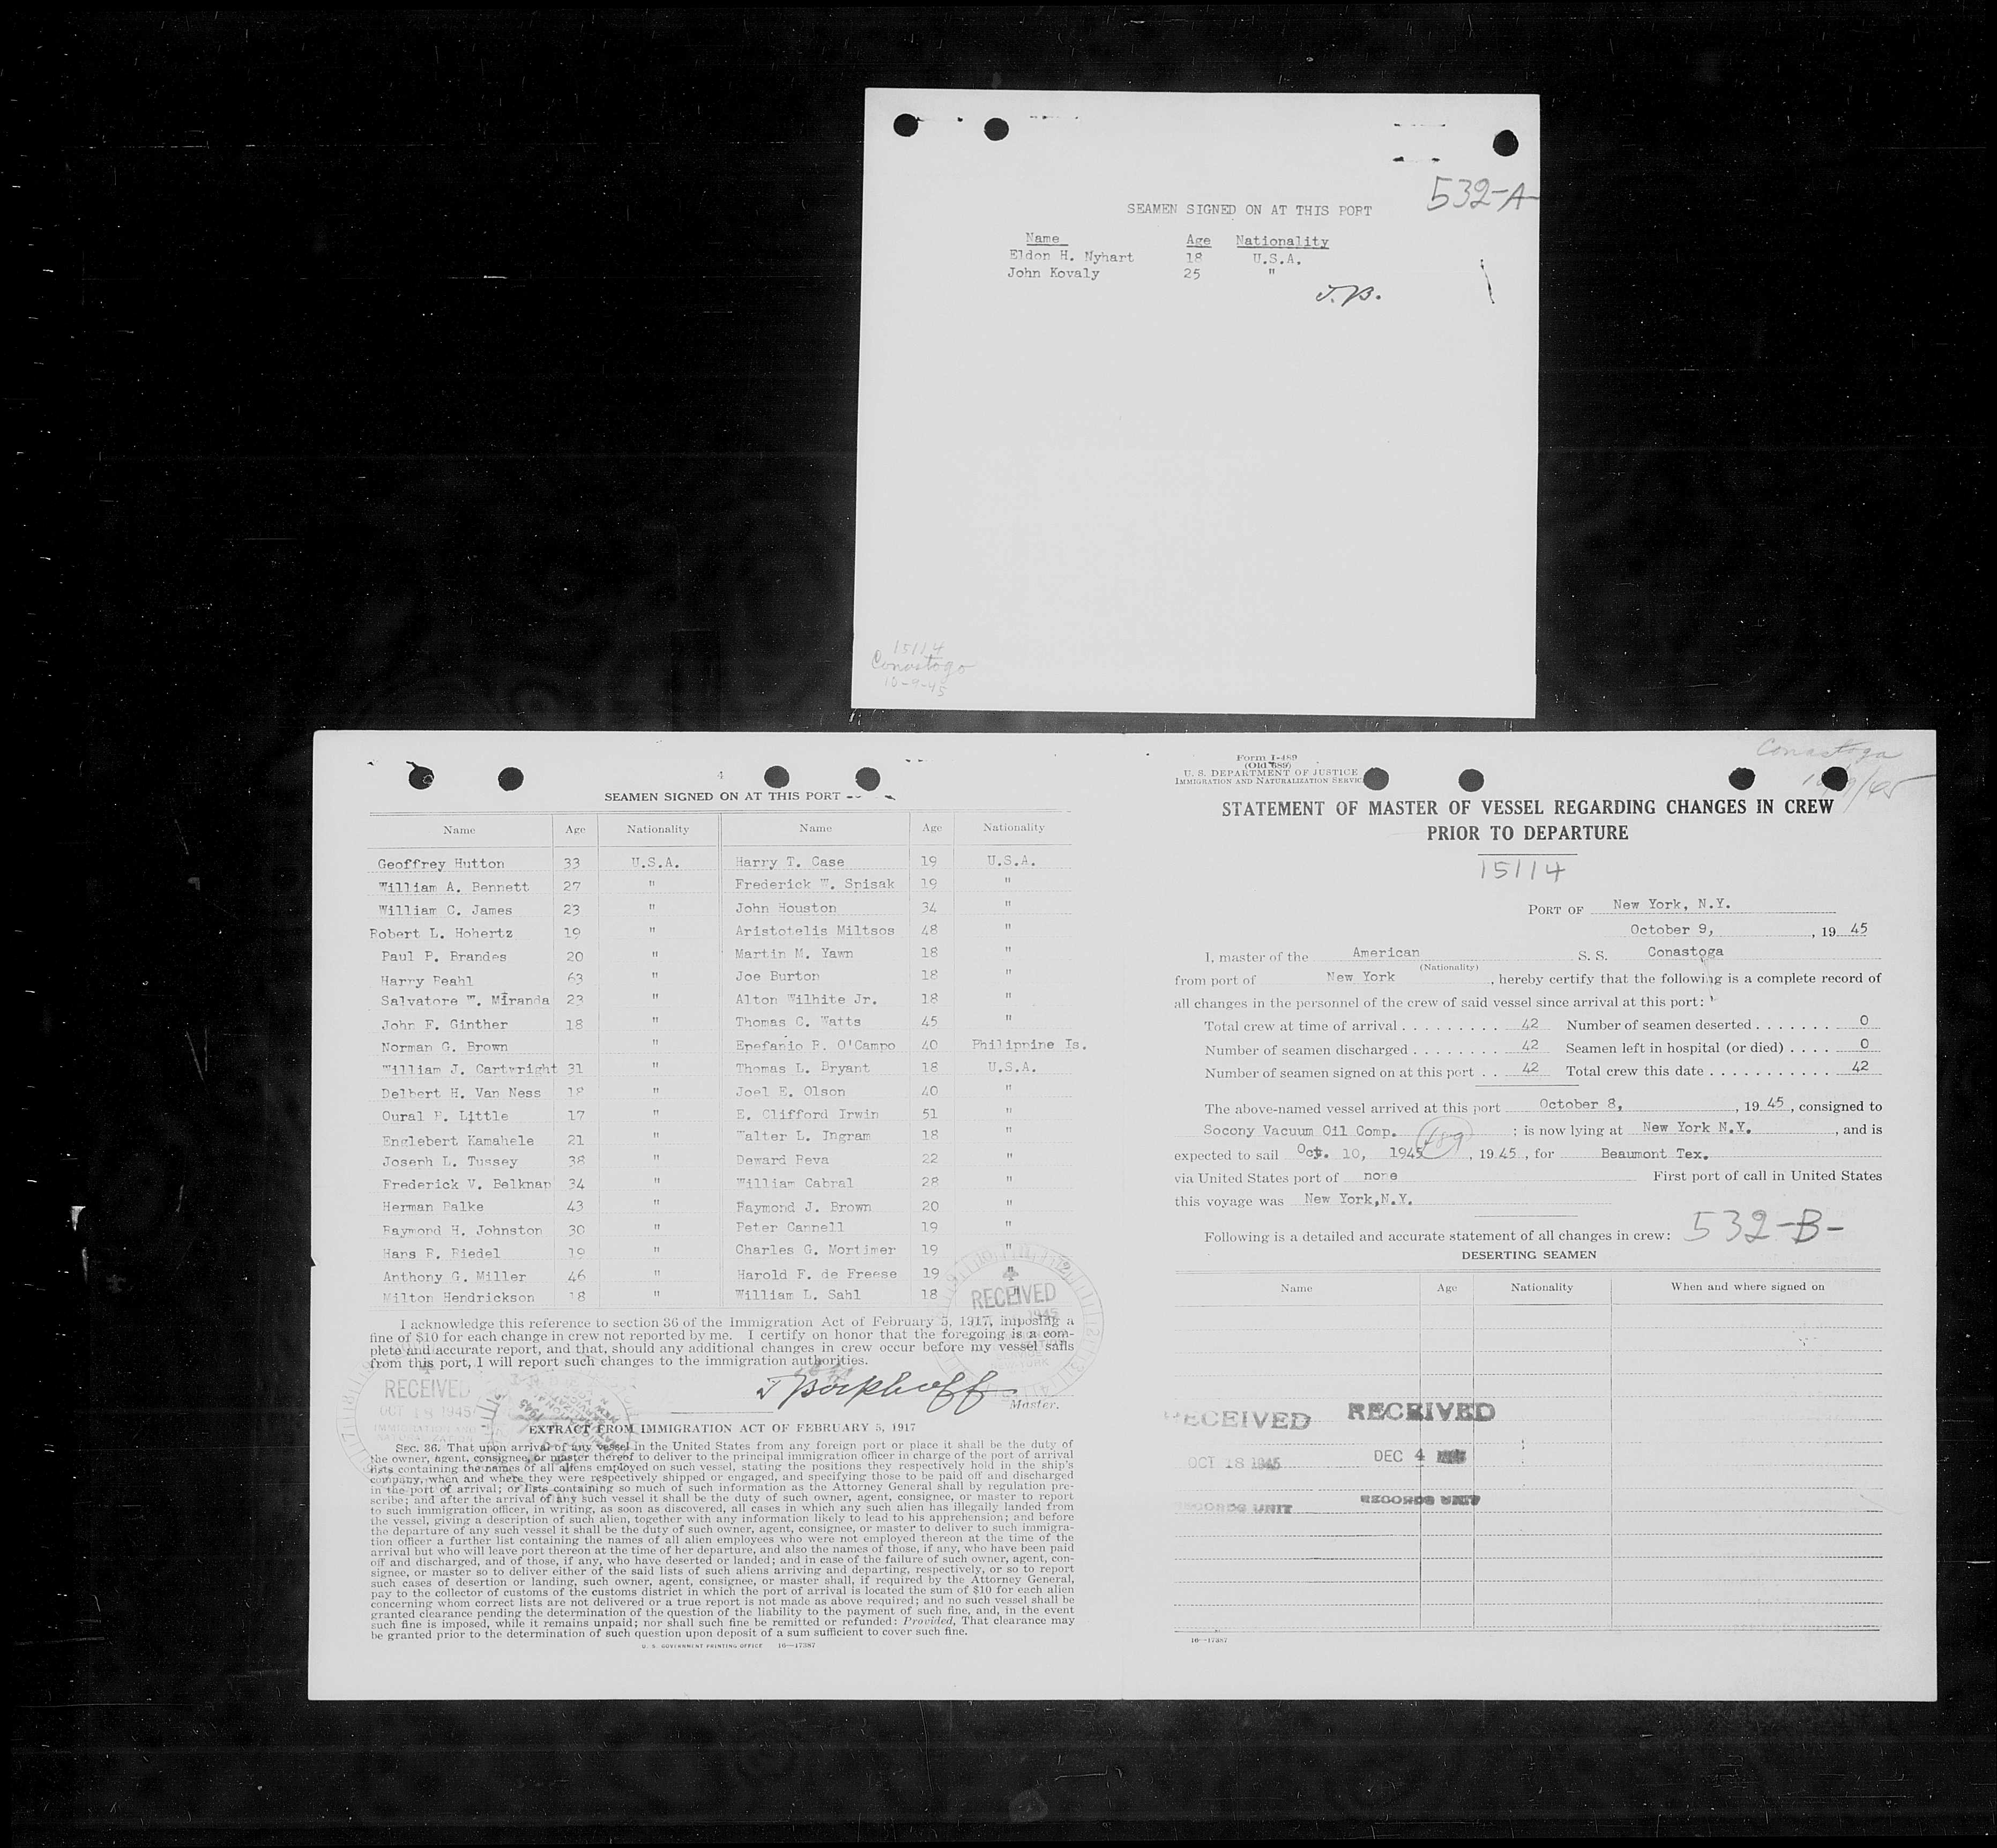 532-A-
SEAMEN SIGNED ON AT THIS PORT
Name Age Nationality
Eldon H. Nyhart 18 U.S.A.
John Kovaly 25 "
J.B.
15114
Conastogo
10-9-45
4
SEAMEN SIGNED ON AT THIS PORT
Name Age Nationality Name Age Nationality
Geoffrey Hutton 33 U.S.A. Harry T. Case 19 U.S.A.
William A. Bennett 27 " Frederick W. Spisak 19 "
William C. James 23 " John Houston 34 "
Robert L. Hohertz 19 " Aristotelis Miltsos 48 "
Paul P. Brandes 20 " Martin M. Yawn 18 "
Harry Reahl 63 " Joe Burton 18 "
Salvatore W. Miranda 23 " Alton Wilhite Jr. 18 "
John F. Ginther 18 " Thomas C. Watts 45 "
Norman G. Brown " Epefanio R. O'Campo 40 Philippine Is.
William J. Cartwright 31 " Thomas L. Bryant 18 U.S.A.
Delbert H. Van Ness 18 " Joel E. Olson 40 "
Oural P. Little 17 " E. Clifford Irwin 51 "
Englebert Kamahele 21 " Walter L. Ingram 18 "
Joseph L. Tussey 38 " Deward Peva 22 "
Frederick V. Belknap 34 " William Cabral 28 "
Herman Balke 43 " Raymond J. Brown 20 "
Raymond H. Johnston 30 " Peter Cannell 19 "
Hans R. Riedel 19 " Charles G. Mortimer 19 "
Anthony G. Miller 46 " Harold F. de Freese 19 "
Milton Hendrickson 18 " William L. Sahl 18 "
RECEIVED
1945
I acknowledge this reference to section 36 of the Immigration Act of February 5, 1917, imposing a
fine of $10 for each change in crew not reported by me. I certify on honor that the foregoing is a com-
plete and accurate report, and that, should any additional changes in crew occur before my vessel sails
from this port, I will report such changes to the immigration authorities.
RECEIVED
OCT 18 1945
Master.
EXTRACT FROM IMMIGRATION ACT OF FEBRUARY 5, 1917
SEC. 36. That upon arrival of any vessel in the United States from any foreign port or place it shall be the duty of
the owner, agent, consignee, or master thereof to deliver to the principal immigration officer in charge of the port of arrival
lists containing the names of all aliens employed on such vessel, stating the positions they respectively hold in the ship's
company, when and where they were respectively shipped or engaged, and specifying those to be paid off and discharged
in the port of arrival; or lists containing so much of such information as the Attorney General shall by regulation pre-
scribe; and after the arrival of any such vessel it shall be the duty of such owner, agent, consignee, or master to report
to such immigration officer, in writing, as soon as discovered, all cases in which any such alien has illegally landed from
the vessel, giving a description of such alien, together with any information likely to lead to his apprehension; and before
the departure of any such vessel it shall be the duty of such owner, agent, consignee, or master to deliver to such immigra-
tion officer a further list containing the names of all alien employees who were not employed thereon at the time of the
arrival but who will leave port thereon at the time of her departure, and also the names of those, if any, who have been paid
off and discharged, and of those, if any, who have deserted or landed; and in case of the failure of such owner, agent, con-
signee, or master so to deliver either of the said lists of such aliens arriving and departing, respectively, or so to report
such cases of desertion or landing, such owner, agent, consignee, or master shall, if required by the Attorney General,
pay to the collector of customs of the customs district in which the port of arrival is located the sum of $10 for each alien
concerning whom correct lists are not delivered or a true report is not made as above required; and no such vessel shall be
granted clearance pending the determination of the question of the liability to the payment of such fine, and, in the event
such fine is imposed, while it remains unpaid; nor shall such fine be remitted or refunded: Provided, That clearance may
be granted prior to the determination of such question upon deposit of a sum sufficient to cover such fine.
U. S. GOVERNMENT PRINTING OFFICE 16—17387
Conastoga
Form I-489
(Old 689)
U. S. DEPARTMENT OF JUSTICE
IMMIGRATION AND NATURALIZATION SERVICE
STATEMENT OF MASTER OF VESSEL REGARDING CHANGES IN CREW
PRIOR TO DEPARTURE
15114
PORT OF New York, N.Y.
October 9, , 19 45
I, master of the American S. S. Conastoga
(Nationality)
from port of New York , hereby certify that the following is a complete record of
all changes in the personnel of the crew of said vessel since arrival at this port:
Total crew at time of arrival . . . . . . . . . 42 Number of seamen deserted . . . . . . . 0
Number of seamen discharged . . . . . . . . 42 Seamen left in hospital (or died) . . . . 0
Number of seamen signed on at this port . . 42 Total crew this date . . . . . . . . . . . 42
The above-named vessel arrived at this port October 8, , 19 45 , consigned to
Socony Vacuum Oil Comp. ; is now lying at New York N.Y. , and is
489
expected to sail Oct. 10, 1945 , 19 45 , for Beaumont Tex.
via United States port of none First port of call in United States
this voyage was New York,N.Y.
532-B-
Following is a detailed and accurate statement of all changes in crew:
DESERTING SEAMEN
Name Age Nationality When and where signed on
RECEIVED RECEIVED
OCT 18 1945 DEC 4
RECORDS UNIT RECORDS UNIT
16—17387